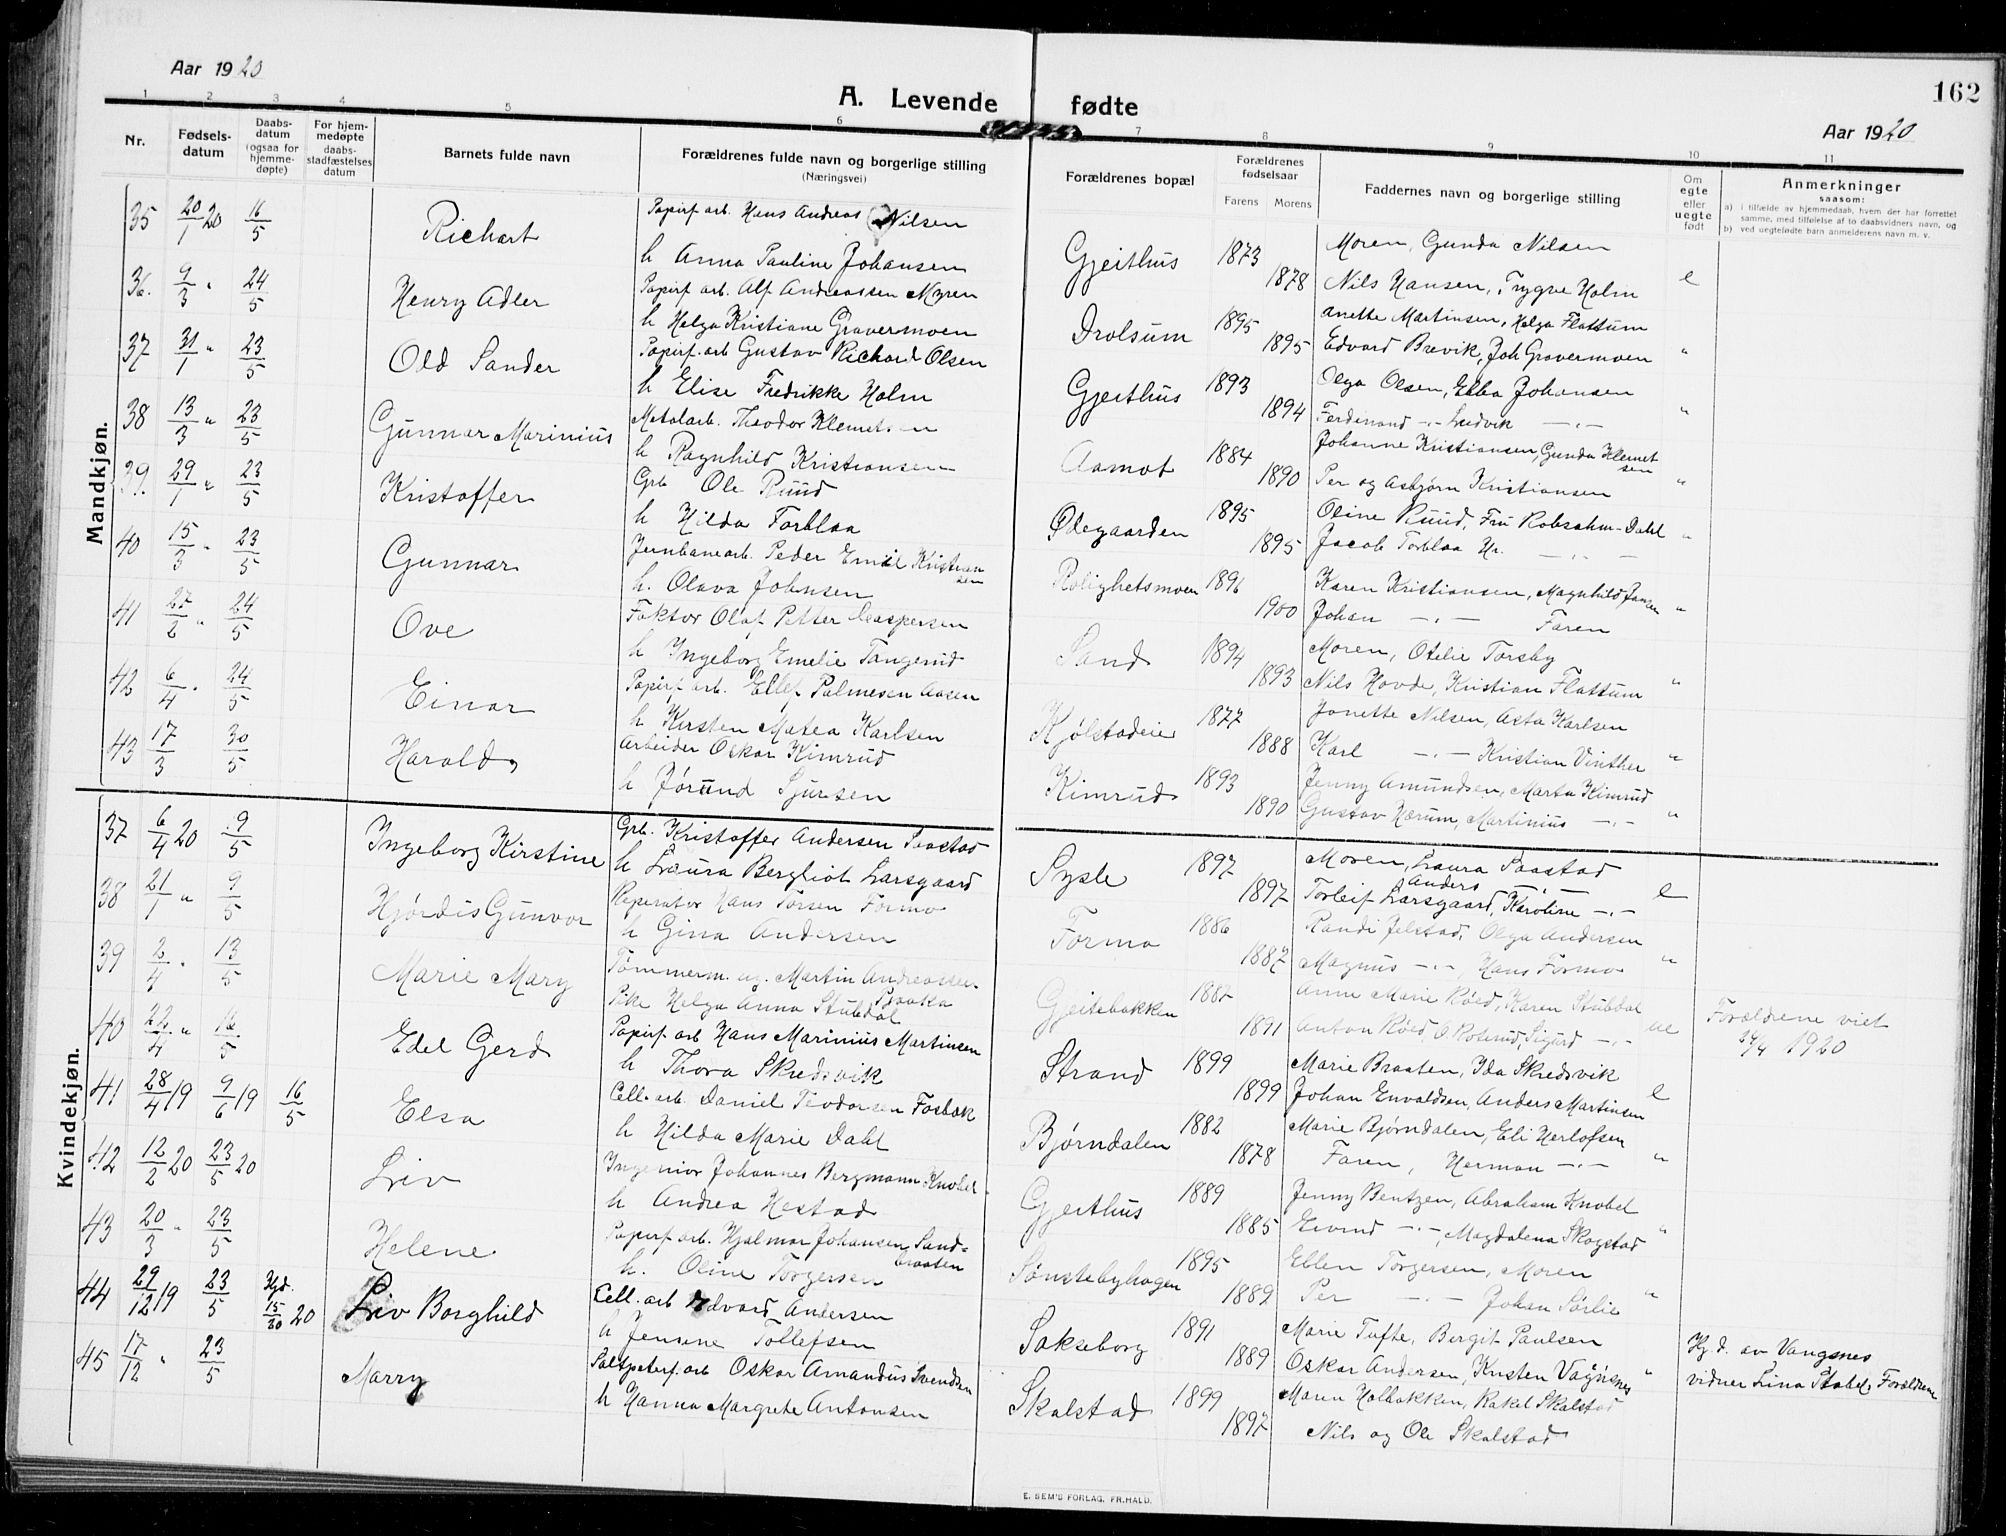 Aar 1920
A. Levende fødte
162
Aar 1920
1 2 3 4 5 6 7 8 9 10 11
Nr.
Fødsels-datum
Daabs-datum (ogsaa for hjemme-døpte)
For hjem-medøpte daabs-stadfæstelses datum
Barnets fulde navn
Forældrenes fulde navn og borgerlige stilling (Næringsvei)
Forældrenes bopæl
Forældrenes fødselsaar
Farens Morens
Faddernes navn og borgerlige stilling
Om egte eller uegte født
Anmerkninger saasom:
a) i tilfælde av hjemmedaab, hvem der har forrettet samme, med tilføielse af to daabsvidners navn, og
b) ved uegtefødte barn anmelderens navn m. v.
Mandkjøn.
35 20/1 20 16/5 Richart Papirf. arb. Hans Andreas Nilsen
h Anna Pauline Johansen Gjeithus 1873 1878 Moren, Gunda Nilsen
Nils Hansen, Trygve Holm e
36. 9/3 " 24/5 Henry Adler Papirf. arb. Alf Andreassen Myren
h Helga Kristiane Gravermoen Drolsum 1895 1895 Anette Martinsen, Helga Flattum
Edvard Brevik, Joh Gravermoen "
37 31/1 " 23/5 Old Sander Papirf. arb Gustav Richard Olsen
h Elise Fredrikke Holm Gjeithus 1893 1894 Olga Olsen, Ebba Johansen
Ferdinand -"- Ludvik -"- "
38 13/3 " 23/5 Gunnar Marinius Metalarb. Theodor Klemetsen
h Ragnhild Kristiansen Aamot 1884 1890 Johanne Kristiansen, Gunda Klemetsen
Per og Asbjørn Kristiansen "
39. 29/1 " 23/5 Kristoffer Grb Ole Ruud
h Hilda Torblaa Ødegaarden 1895 1895 Oline Ruud, Fru Robsahm-Dahl
Jacob Torblaa Hr. -"- "
40 15/3 " 23/5 Gunnar Jernbanearb. Peder Emil Kristiansen
h. Olava Johnsen Rolighetsmoen 1896 1900 Karen Kristiansen, Magnhild Jansen
Johan -"- Faren "
41 27/2 " 24/5 Ove Faktor Olaf Petter Caspersen
h Ingeborg Emelie Tangerud Sand 1894 1893 Moren, Otelie Torsby
Nils Hovde, Kristian Flattum "
42 6/4 " 24/5 Einar Papirf. arb. Ellef Palmesen Aasen
h Kirsten Matea Karlsen Kjølstadeie 1877 1888 Jonette Nilsen, Asta Karlsen
Karl -"- Kristian Vinther "
43 17/3 30/5 Harald Arbeider Oskar Kimrud
h Jørund Sjursen Kimrud 1893 1890 Jenny Amundsen, Marta Kimrud
Gustav Hærum, Martinius -"- "
Kvindekjøn.
37 6/4 20 9/5 Ingeborg Kirstine Grb. Kristoffer Andersen Saastad
h Laura Bergliot Larsgaard Sysle 1897 1897 Moren, Laura Saastad
Torleif Larsgaard, Anders -"- Karoline -"- e
38 21/1 " 9/5 Hjørdis Gunvor Reperatør Hans Torsen Formo
h Gina Andersen Formo 1886 1887 Randi Jelstad, Olga Andersen
Magnus -"-, Hans Formo "
39 2/4 " 13/5 Marie Mary Tømmerm. ug. Martin Andreassen Braaka
Pike Helga Anna Stubdal Gjeitebakken 1882 1891 Anne Marie Røed, Karen Stubdal
Anton Røed, O. Roterud, Sigurd -"- ue Forældrene viet 24/4 1920
40 22/4 " 16/5 Edel Gerd Papirf. arb Hans Marinius Martinsen
h Thora Skredsvik Strand 1899 1899 Marie Braaten, Ida Skredsvik
Johan Envaldsen, Anders Martinsen e
41 28/4 19 9/6 19 16/5 Elsa Cell. arb. Daniel Teodorsen Fosbak
h Hilda Marie Dahl Bjørndalen 1882 1878 Marie Bjørndalen, Eli Herlofsen
Faren, Herman -"- "
42 12/2 20 23/5 20 Liv Ingeniør Johannes Bergmann Knobel
h Andrea Hestad Gjeithus 1889 1885 Jenny Bentzen, Abraham Knobel
Eivind -"-, Magdalena Skogstad "
43 20/3 " 23/5 Helene Papirf. arb. Hjalmar Johansen Sandbraaten
h. Oline Torgersen Sønstebyhagen 1895 1889 Ellen Torgersen, Moren
Per -"- Johan Sørlie "
44 29/12 19 23/5 Hjd. 15/20 20 Liv Borghild Cell. arb Edvard Andersen
h Jensine Tollefsen Sakseborg 1891 1889 Marie Tufte, Bergit Paulsen
Oskar Andersen, Kristen Vagnsnes " Hj. d. av Vangsnes
vidner Lina Stabel, Forældrene
45 17/12 " 23/5 Marry Saltpeterf. arb Oskar Amandus Svendsen
h Hanna Margrete Antonsen Skalstad 1899 1897 Maren Holbakken, Rakel Skalstad
Nils og Ole Skalstad
E. SEM'S FORLAG. FR.HALD.